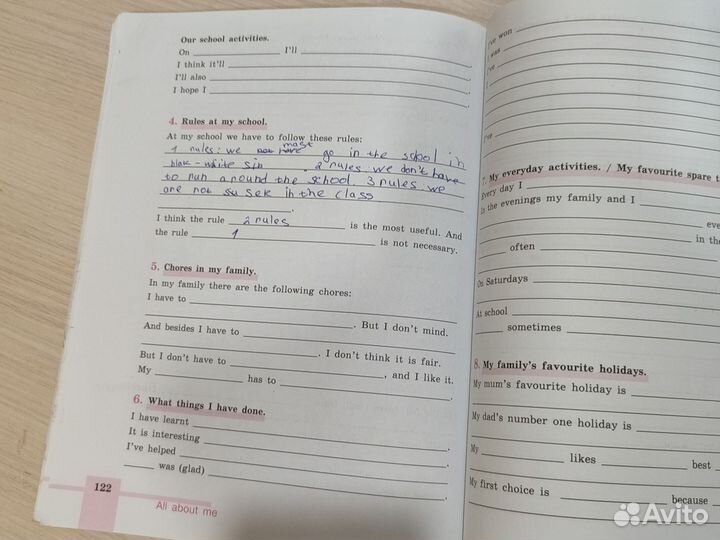 Our school activities.
On ____________ I'll ____________
I think it'll ____________.
I'll also ____________.
I hope I ____________.
4. Rules at my school.
At my school we have to follow these rules:
1 rules: we must go in the school in
blak-white
. 2 rules: we don't have
to run around the school 3 rules: we
are not in the class
____________.
I think the rule 2 rules is the most useful. And
the rule 1 is not necessary.
5. Chores in my family.
In my family there are the following chores:
I have to ____________
____________. But I don't mind.
And besides I have to ____________
____________. I don't think it is fair.
But I don't have to ____________, and I like it.
My ____________ has to ____________.
6. What things I have done.
I have learnt ____________.
It is interesting ____________.
I've helped ____________.
______ was (glad) ____________.
122
All about me
I've won
I was
I've
I've
7. My everyday activities. / My favourite spare t
Every day I ____________
In the evenings my family and I ____________
eve
in the
______ often ____________
On Saturdays ____________
At school ____________
______ sometimes ____________
8. My family's favourite holidays.
My mum's favourite holiday is ____________
My dad's number one holiday is ____________
My ____________ likes ____________ best
My first choice is ____________ because
Avito